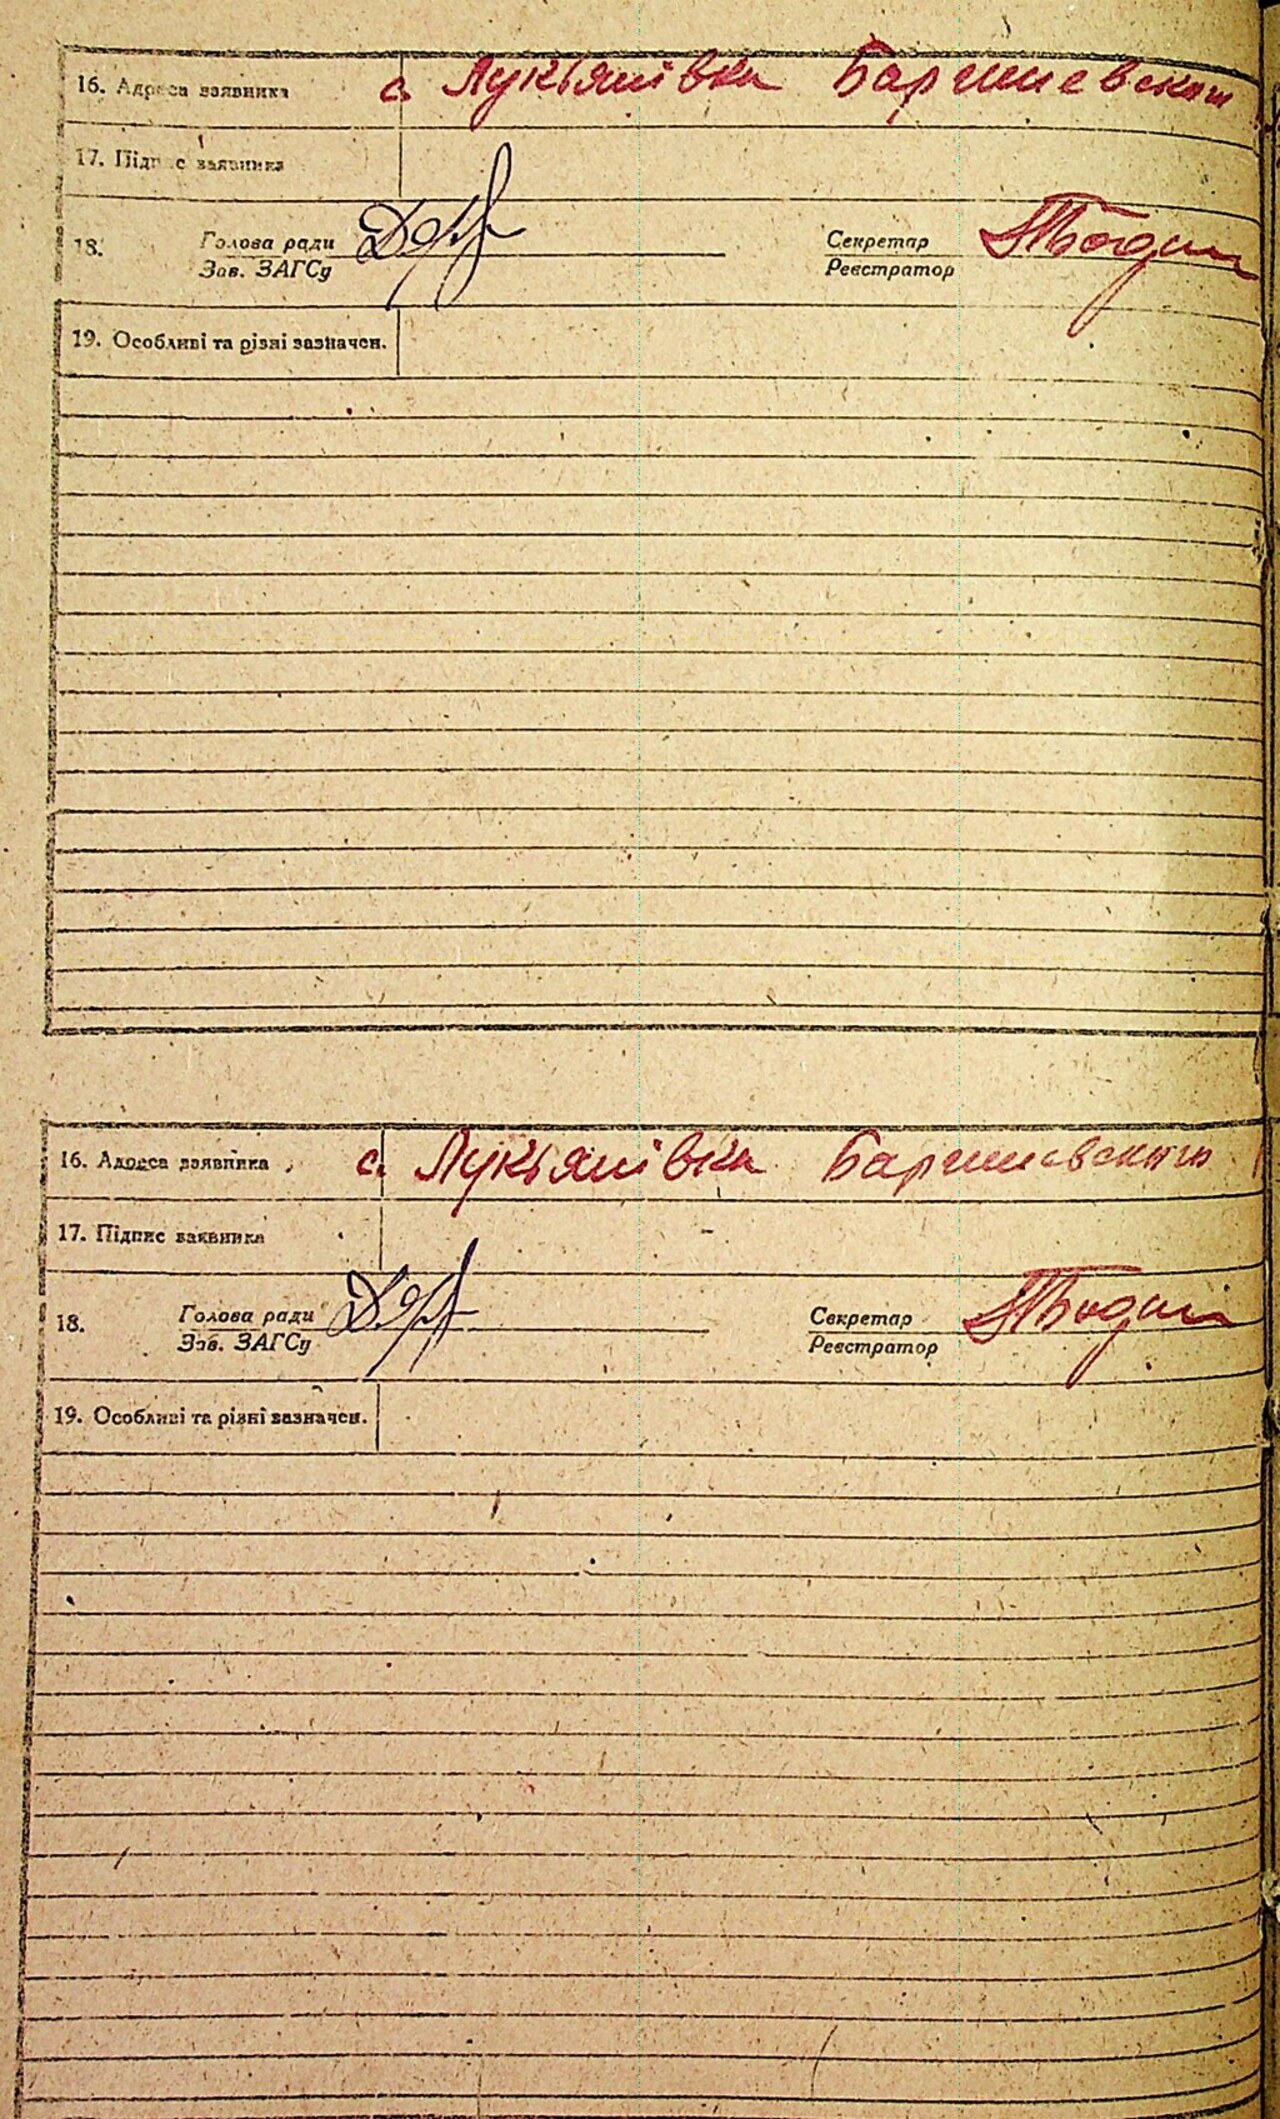 16. Адреса заявника с. Лукьянівка Баришевского
17. Підпис заявника
18. Голова ради Секретар
Зав. ЗАГСу Реєстратор
19. Особливі та різні зазначен.
16. Адреса заявника с. Лукьянівка Баришевского
17. Підпис заявника
18. Голова ради Секретар
Зав. ЗАГСу Реєстратор
19. Особливі та різні зазначен.